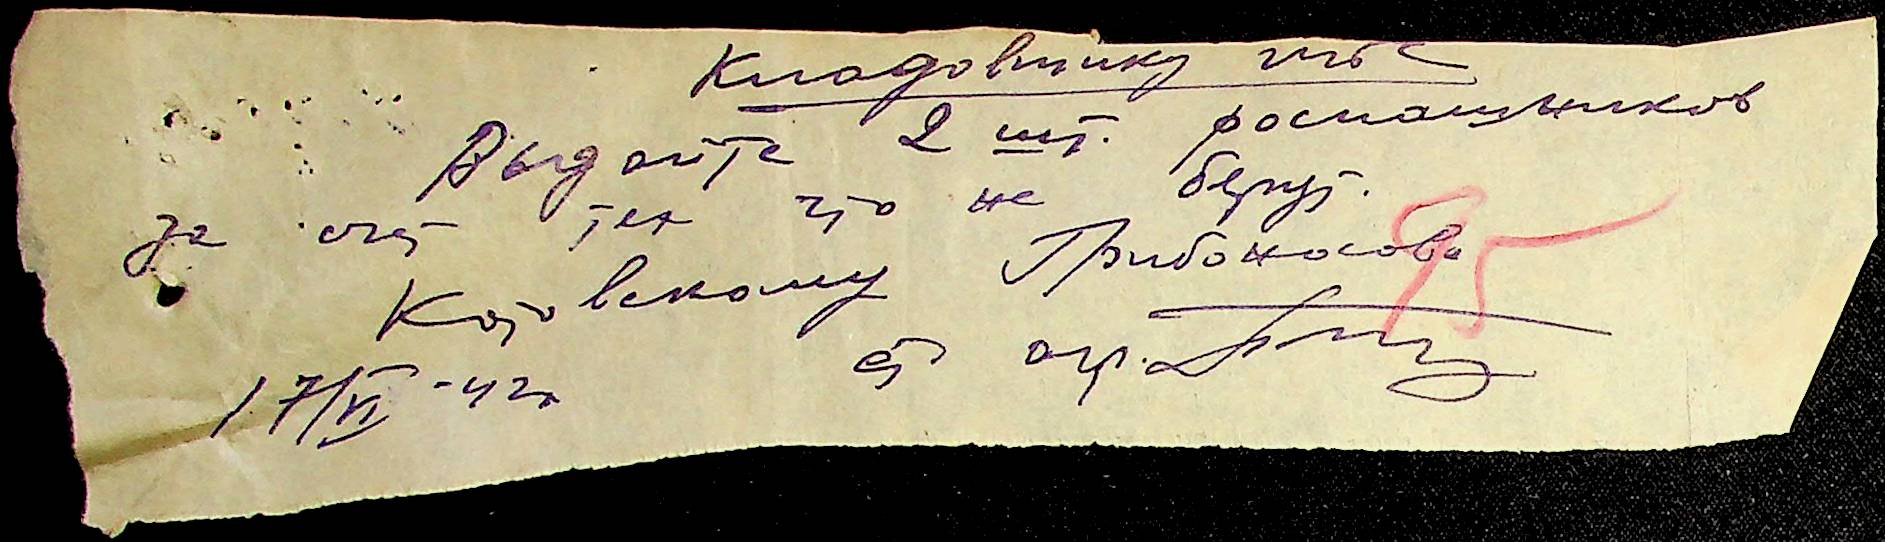 Кладовщику
Выдайте 2 шт. роспашников
за счет тех что не берут.
Котовскому Грибоносова
ст агр.
17/VI-42г
95